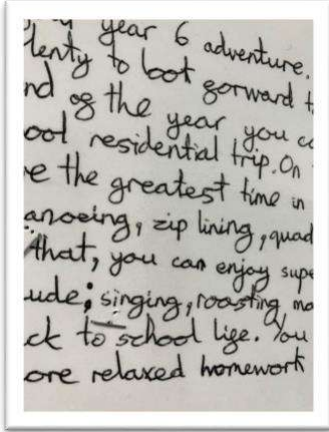 year 6 adventure.
lenty to look forward t
nd of the year you c
ool residential trip. On
e the greatest time in
anoeing, zip lining, quad
that, you can enjoy supe
ude; singing, roasting ma
ck to school life. You
ore relaxed homework